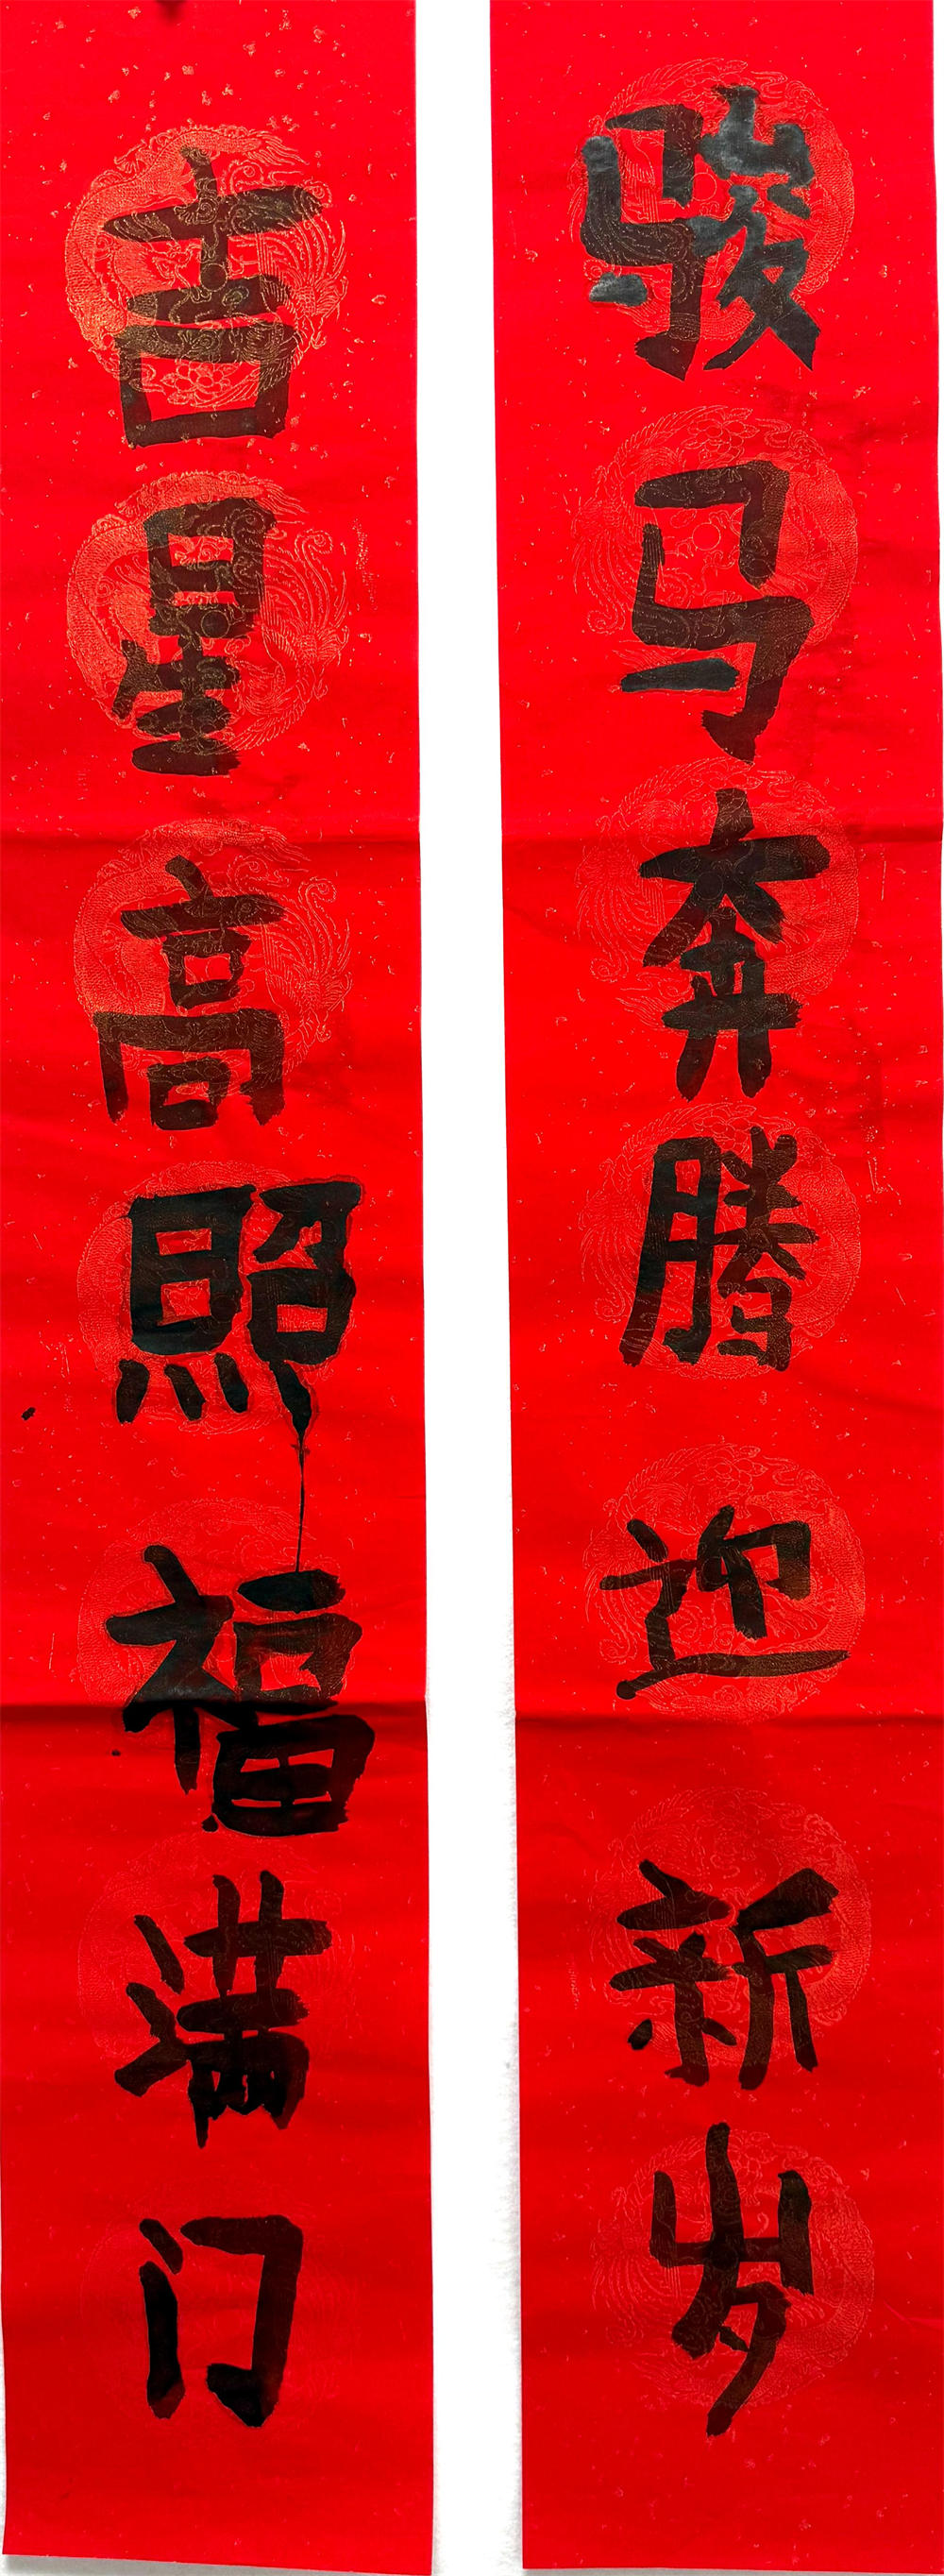 骏马奔腾迎新岁
吉星高照福满门